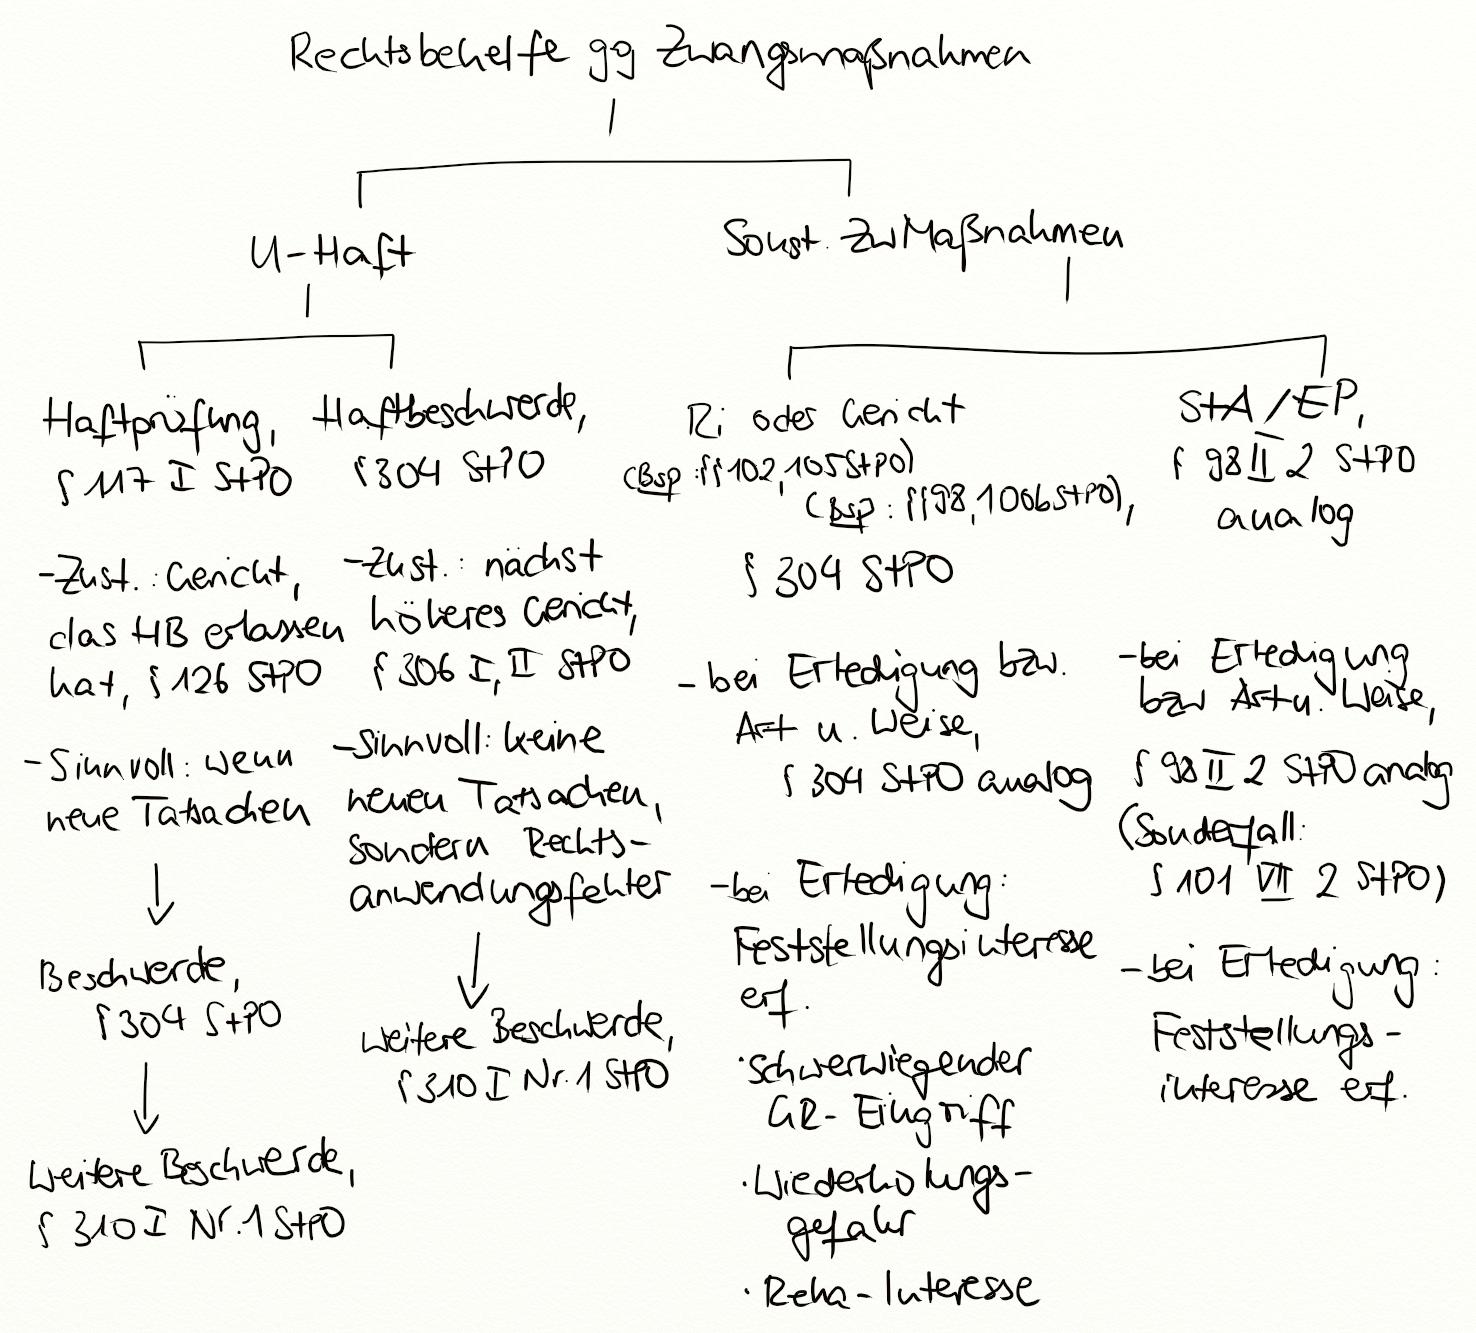 Rechtsbehelfe gg Zwangsmaßnahmen
U-Haft
Sonst. ZwMaßnahmen
Haftprüfung,
§ 117 I StPO
-Zust.: Gericht,
das HB erlassen
hat, § 126 StPO
-Sinnvoll: wenn
neue Tatsachen
Beschwerde,
§ 304 StPO
Weitere Beschwerde,
§ 310 I Nr. 1 StPO
Haftbeschwerde,
§ 304 StPO
-Zust.: nächst
höheres Gericht,
§ 306 I, II StPO
-Sinnvoll: keine
neuen Tatsachen,
sondern Rechts-
anwendungsfehler
Weitere Beschwerde,
§ 310 I Nr. 1 StPO
Ri oder Gericht
(Bsp: §§ 102, 105 StPO)
(Bsp: §§ 98, 100b StPO),
§ 304 StPO
-bei Erledigung bzw.
Art u. Weise,
§ 304 StPO analog
-bei Erledigung:
Feststellungsinteresse
erf.
·Schwerwiegender
GR-Eingriff
·Wiederholungs-
gefahr
·Reha-Interesse
StA/EP,
§ 98 II 2 StPO
analog
-bei Erledigung
bzw Art u. Weise,
§ 98 II 2 StPO analog
(Sonderfall:
§ 101 VII 2 StPO)
-bei Erledigung:
Feststellungs-
interesse erf.